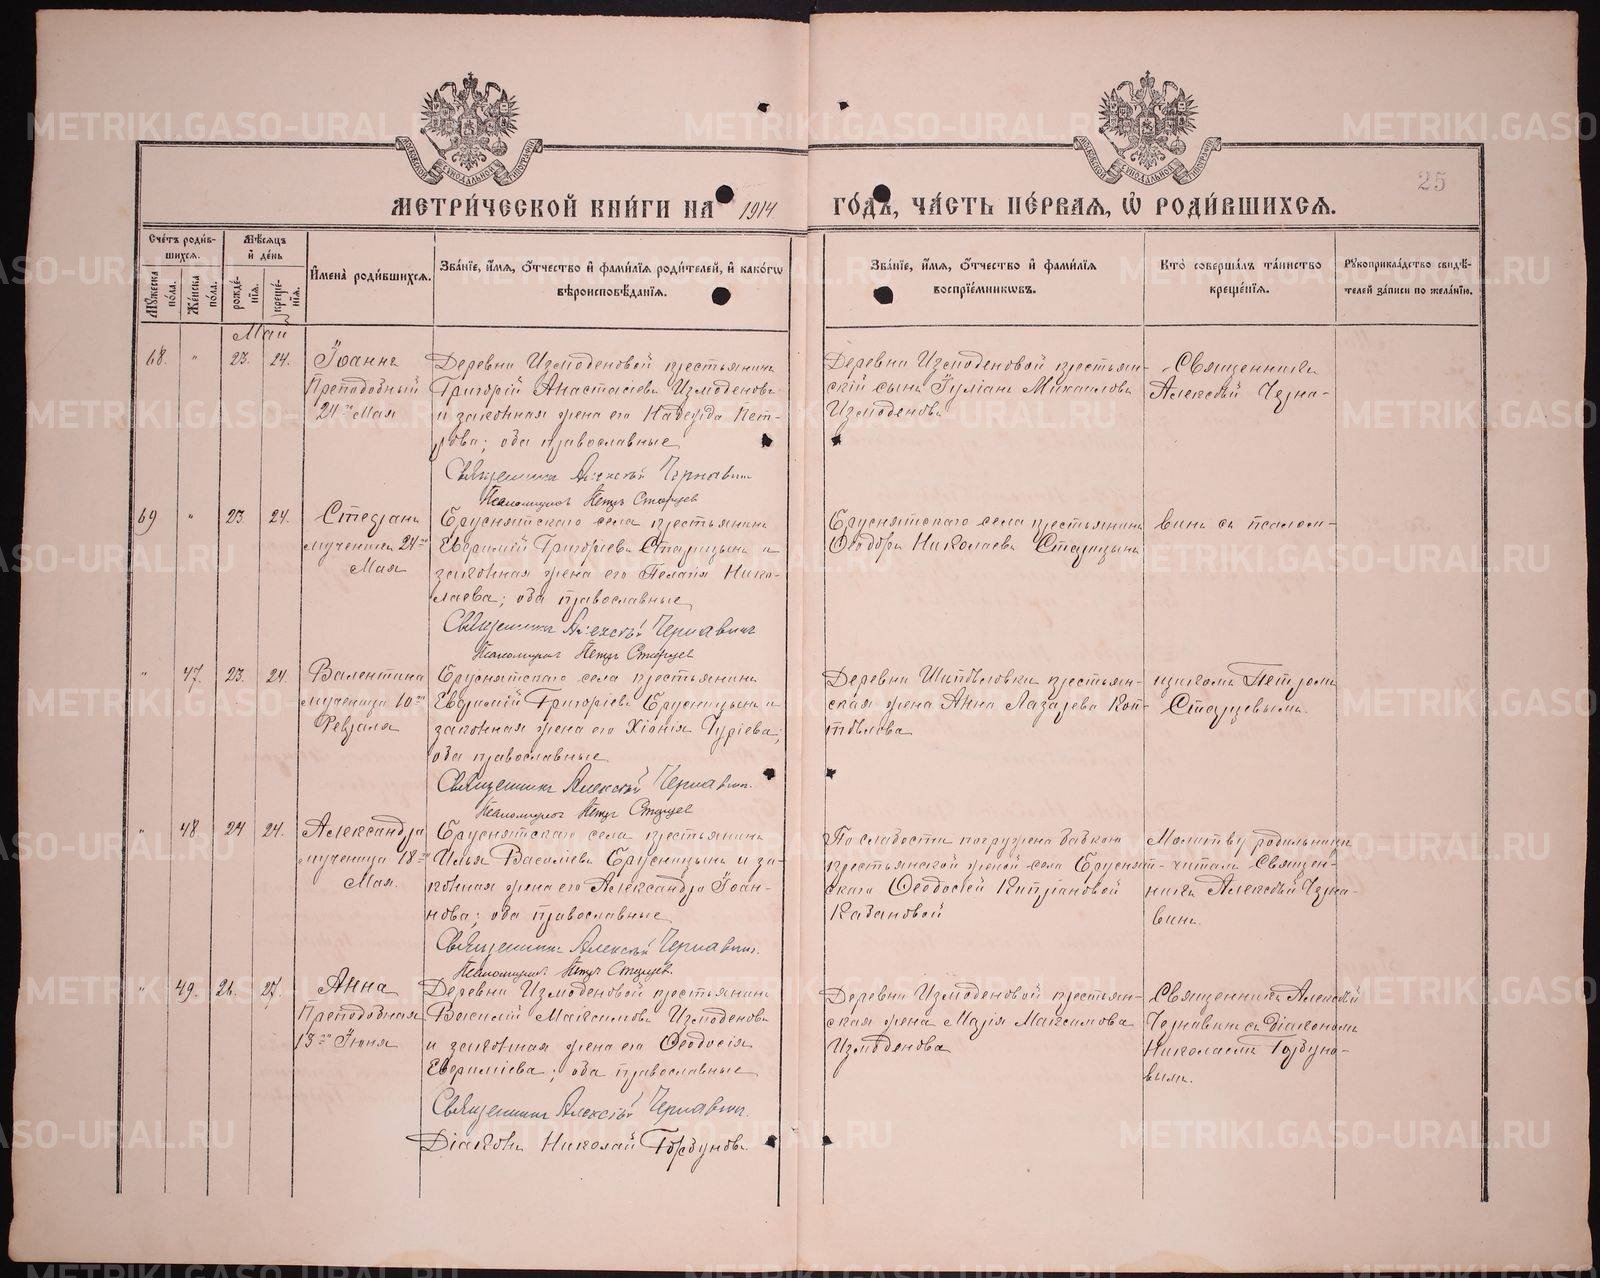 25
МЕТРИ́ЧЕСКОЙ КНИ́ГИ НА 1914 ГО́ДЪ, ЧА́СТЬ ПЕ́РВАЯ, Ѡ РОДИ́ВШИХСЯ.
Сче́тъ роди́в-
шихся.
Мѣ́сяцъ
и҆ де́нь
Мꙋ́жеска по́ла.
Же́нска по́ла.
рожде́-
нїѧ.
креще́-
нїѧ.
И҆мена̀ роди́вшихсѧ.
Зва́нїе, и҆́мѧ, ѻ҆́тчество и҆ фами́лїѧ роди́телей, и҆ како́гѡ
вѣроисповѣ́данїѧ.
Зва́нїе, и҆́мѧ, ѻ҆́тчество и҆ фами́лїѧ
воспрїе́мникѡвъ.
Кто̀ соверша́лъ та́инство
креще́нїѧ.
Рꙋкоприкла́дство свидѣ́-
телей за́писи по жела́нїю.
Май
68. " 23. 24. Іоаннъ
Преподобный
24го Мая
Деревни Измоденовой крестьянинъ
Григорій Анастасіевъ Измоденовъ
и законная жена его Надежда Пет-
рова; оба православные
Священникъ Алексѣй Чернавинъ
Псаломщикъ Петръ Старцев
Деревни Измоденовой крестьян-
скій сынъ Іуліанъ Михаиловъ
Измоденовъ
Священникъ
Алексѣй Черна-
69 " 23. 24. Стефанъ
мученикъ 24го
Мая
Бруснятскаго села крестьянинъ
Евфимій Григоріевъ Старицынъ и
законная жена его Пелагія Нико-
лаева; оба православные
Священникъ Алексѣй Чернавинъ
Псаломщикъ Петръ Старцев
Бруснятскаго села крестьянинъ
Ѳеодоръ Николаевъ Старицынъ
винъ съ псалом-
" 47. 23. 24. Валентина
мученица 10го
Февраля
Бруснятскаго села крестьянинъ
Евфимій Григоріевъ Брусницынъ и
законная жена его Хіонія Гуріева;
оба православные
Священникъ Алексѣй Чернавинъ.
Псаломщикъ Петръ Старцев
Деревни Шипѣловки крестьян-
ская жена Анна Лазарева Коп-
тѣлова
щикомъ Петромъ
Старцевымъ.
" 48 24 24. Александра
мученица 18го
Мая.
Бруснятскаго села крестьянинъ
Илья Василіевъ Брусницынъ и за-
конная жена его Александра Іоан-
нова; оба православные
Священникъ Алексѣй Чернавинъ.
Псаломщикъ Петръ Старцев.
По слабости погружена бабкою
крестьянской женой села Бруснят-
скаго Ѳеодосіей Кипріановой
Кабановой
Молитву родильницѣ
читалъ Священ-
никъ Алексѣй Черна-
винъ.
" 49. 26. 27. Анна
Преподобная
13го Іюня
Деревни Измоденовой крестьянинъ
Василій Максимовъ Измоденовъ
и законная жена его Ѳеодосія
Евфиміева; оба православные
Священникъ Алексѣй Чернавинъ.
Діаконъ Николай Горбуновъ.
Деревни Измоденовой крестьян-
ская жена Марія Максимова
Измоденова
Священникъ Алексѣй
Чернавинъ съ Діакономъ
Николаемъ Горбуно-
вымъ.